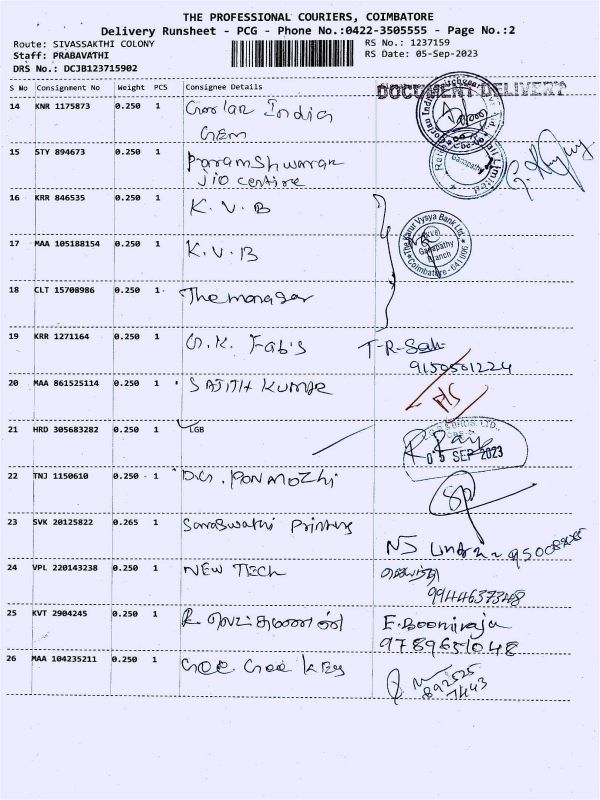 THE PROFESSIONAL COURIERS, COIMBATORE
Delivery Runsheet - PCG - Phone No.:0422-3505555 - Page No.:2
Route: SIVASSAKTHI COLONY RS No.: 1237159
Staff: PRABAVATHI RS Date: 05-Sep-2023
DRS No.: DCJB123715902
S No Consignment No Weight PCS Consignee Details
DOCUMENT DELIVERY
14 KNR 1175873 0.250 1 India
Gem
15 STY 894673 0.250 1 Parameshwaran
Jio centre
Ganapathy
Limited
16 KRR 846535 0.250 1 K.V.B
The Karur Vysya Bank Ltd.
KVB
Ganapathy
Branch
Coimbatore - 641 006
17 MAA 105188154 0.250 1 K.V.B
18 CLT 15708986 0.250 1 The manager
19 KRR 1271164 0.250 1 G.K. Fab's T-R-Sah
9150501224
20 MAA 861525114 0.250 1 SAJITH KUMAR
P/S
21 HRD 305683282 0.250 1 LGB
05 SEP 2023
22 TNJ 1150610 0.250 1 D.G. PONMOZHI
23 SVK 20125822 0.265 1 Saraswathi Printers
NS
24 VPL 220143238 0.250 1 NEW TECH
9944637348
25 KVT 2904245 0.250 1 E. Boomiraja
9789651048
26 MAA 104235211 0.250 1
892525
7443